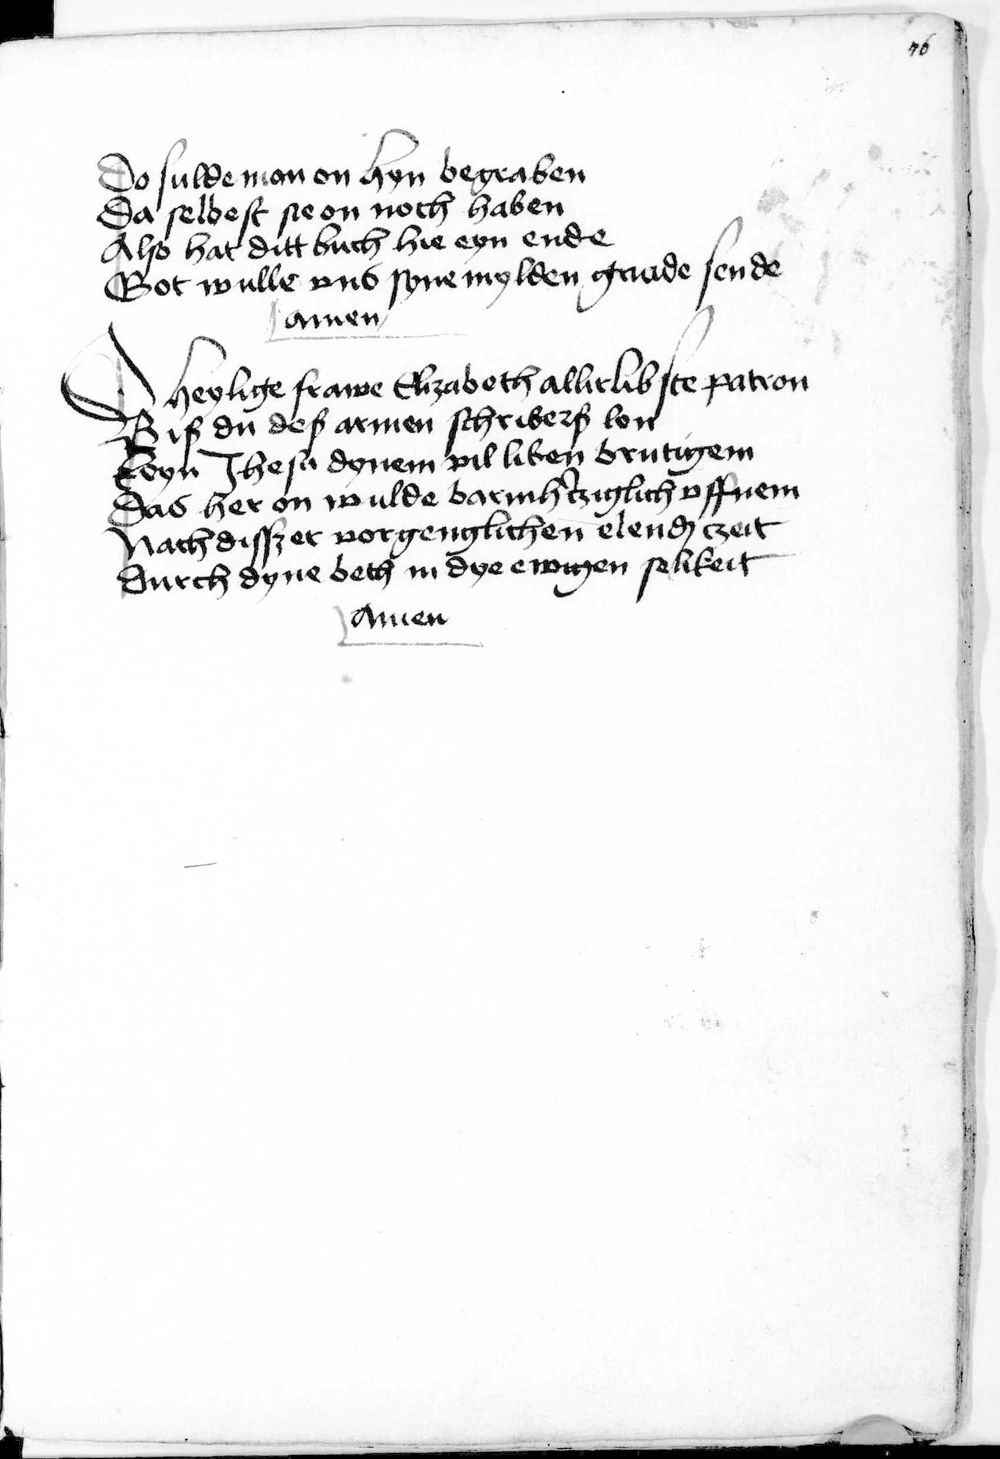 76
Do sulde man on hyn begraben
Da selbest sie on noch haben
Also hat ditt buch hie eyn ende
Got wulle vns syne mylden gnade sende
Amen
O heylige frawe Elizabeth allirlibste patron
Biß du deß armen schriberß lon
Keyn Jhesu dynem vil liben brutigem
Das her on wulde barmhertziglich vffnem
Nach disszer vorgenglichen elenden czeit
Durch dyne beth in dye ewigen selikeit
Amen